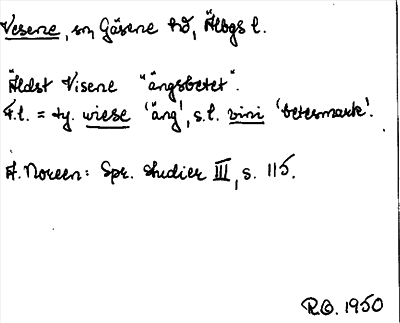 Vesene, sn, Gäsene hd, Älvbgs l.
Äldst Visene "ängsbetet".
F.l. = ty. wiese 'äng', s.l. vini 'betesmark'.
A. Noreen: Spr. studier III, s. 115.
R.O. 1950